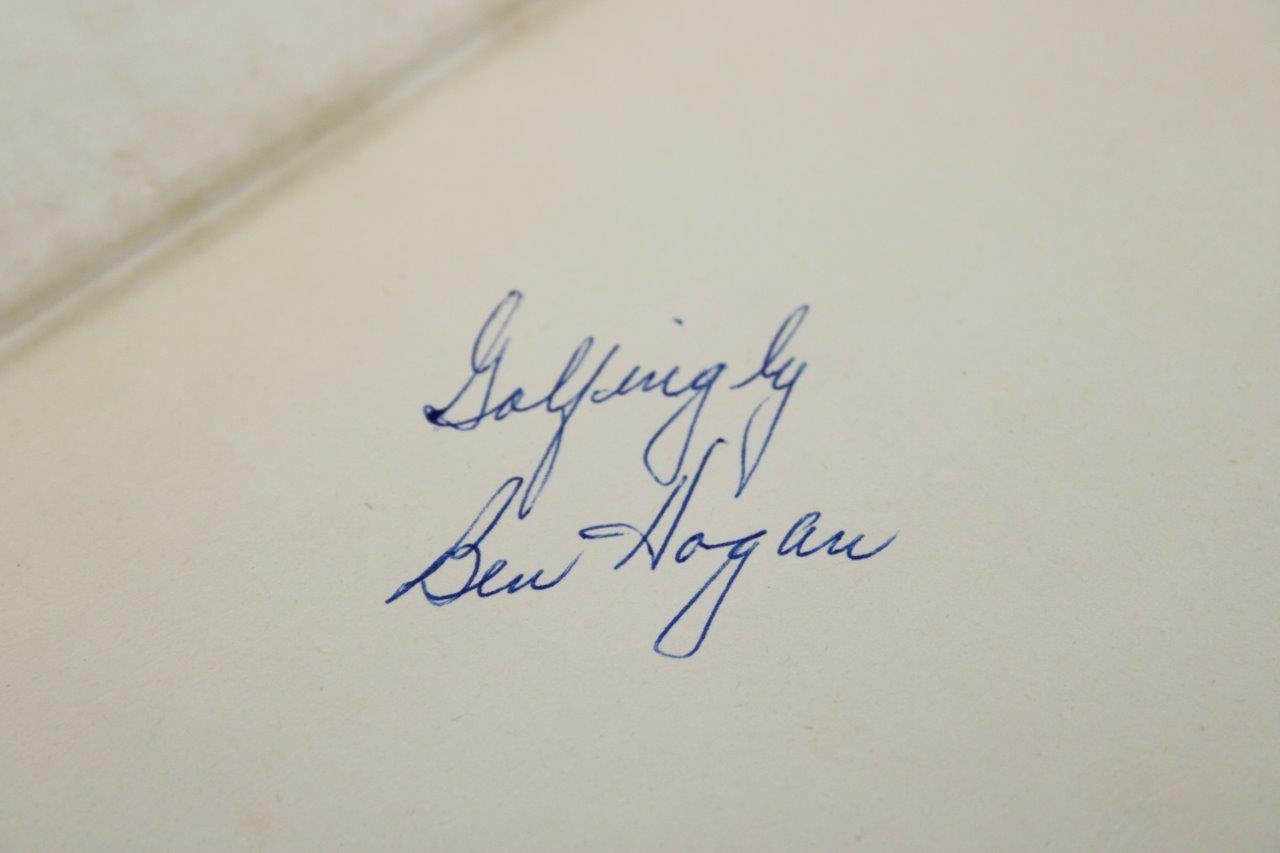 Golfingly
Ben Hogan